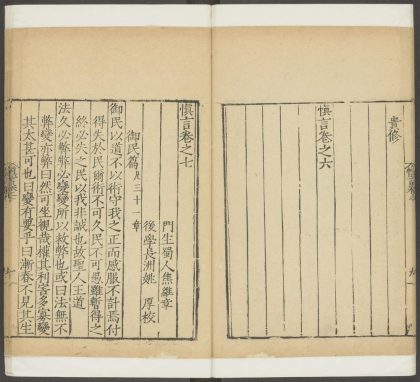 貴修
慎言卷之六
慎言卷之七
門生蜀人焦維章
後學長洲姚 厚校
御民篇凡三十一章
御民以道不以術守我之正而感服不計焉付
得失於民爾術不可久民不可愚雖暫得之
終必失之民以我非誠也故聖人王道
法久必弊弊必變變所以救弊也或曰法無不
弊變亦弊曰然可坐觀哉權其利害多寡變
其太甚可也曰變有要乎曰漸春不見其生